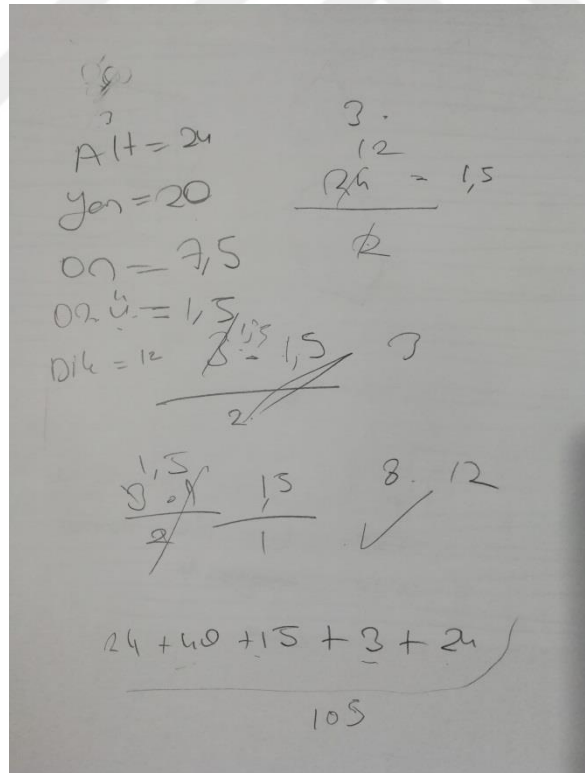 Alt = 24
Yan = 20
Ön = 7,5
Ön ü. = 1,5
Dik = 12
3.
12
24 = 1,5
2
3 - 1,5
1,5
2
3
1,5
3 . 1
2
1,5
1
8. 12
24 + 40 + 15 + 3 + 24
105